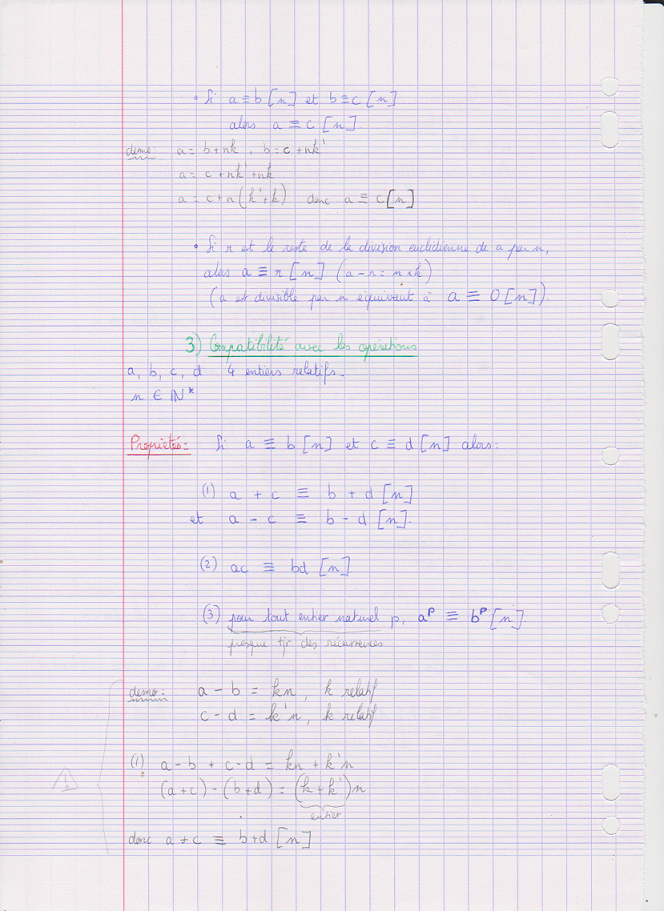 • Si a ≡ b [n] et b ≡ c [n]
alors a ≡ c [n]
démo: a = b + nk, b = c + nk'
a = c + nk' + nk
a = c + n(k' + k) donc a ≡ c [n]
• Si r est le reste de la division euclidienne de a par n,
alors a ≡ r [n] (a - r = n × k)
(a est divisible par n équivaut à a ≡ 0 [n]).
3) Compatibilité avec les opérations
a, b, c, d 4 entiers relatifs.
n ∈ ℕ*
Propriétés: Si a ≡ b [n] et c ≡ d [n] alors:
(1) a + c ≡ b + d [n]
et a - c ≡ b - d [n].
(2) ac ≡ bd [n]
(3) pour tout entier naturel p, aᵖ ≡ bᵖ [n]
presque tjr des récurrences
démo: a - b = kn, k relatif
c - d = k'n, k relatif
(1) a - b + c - d = kn + k'n
(a + c) - (b + d) = (k + k')n
entier
donc a + c ≡ b + d [n]